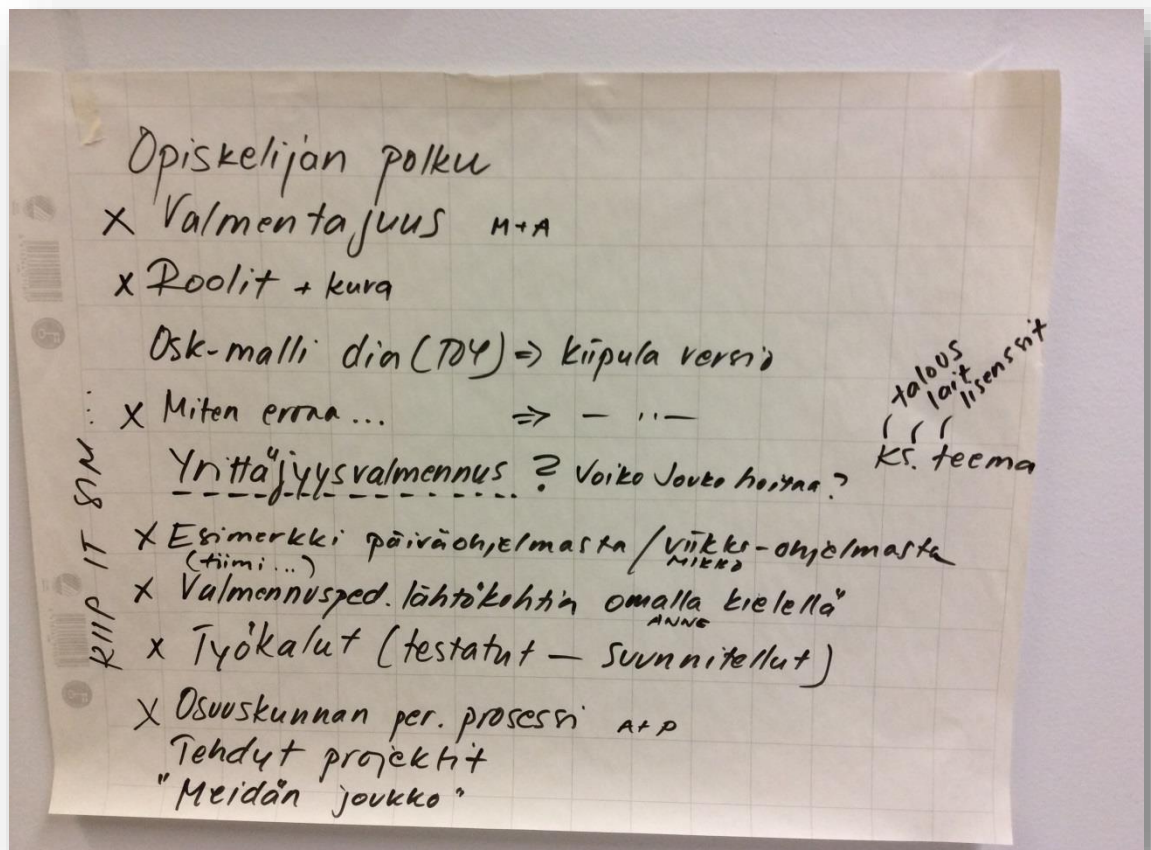 Opiskelijan polku
X Valmentajuus M+A
X Roolit + kuva
Osk-malli dia (TOY) => Kiipula versio
X Miten eroaa... => — ''—
talous
lait
lisenssit
ks. teema
Yrittäjyysvalmennus ? Voiko Jouko hoitaa?
X Esimerkki päiväohjelmasta / viikko-ohjelmasta
(tiimi...) MIKKO
X Valmennusped. lähtökohtia omalla kielellä"
ANNE
X Työkalut (testatut — suunnitellut)
X Osuuskunnan per. prosessi A+P
Tehdyt projektit
"Meidän joukko"
KIIP IT SIM...